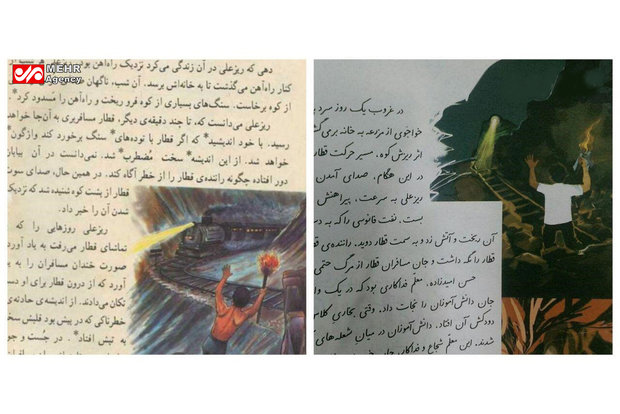 MEHR
Agency
دهی که ریزعلی در آن زندگی می‌کرد نزدیک راه‌آهن بود. ریزعلی
کنار راه‌آهن می‌گذشت تا به خانه‌اش برسد. آن شب، ناگهان
از کوه برخاست. سنگ‌های بسیاری از کوه فرو ریخت و راه‌آهن را مسدود کرد*.
ریزعلی می‌دانست که، تا چند دقیقه‌ی دیگر، قطار مسافربری به آن‌جا خواهد
رسید. با خود اندیشید* که اگر قطار با توده‌های* سنگ برخورد کند واژگون*
خواهد شد. از این اندیشه* سخت مُضطرب* شد. نمی‌دانست در آن بیابان
دور افتاده چگونه راننده‌ی قطار را از خطر آگاه کند. در همین حال، صدای سوت
قطار از پشت کوه شنیده شد که نزدیک
شدن آن را خبر داد.
ریزعلی روزهایی را که
تماشای قطار می‌رفت به یاد آورد
صورت خندان مسافران را به یاد
آورد که از درون قطار برای او دست
تکان می‌دادند. از اندیشه‌ی حادثه‌ی
خطرناکی که در پیش بود قلبش سخت
به تپش افتاد*. در جست و جوی
در غروب یک روز سرد
خواجوی از مزرعه به خانه برمی
اثر ریزش کوه، مسیر حرکت قطار
در این هنگام، صدای آمدن
ریزعلی به سرعت، پیراهنش
بست. نفت فانوسی را که به
آن ریخت و آتش زد و به سمت قطار دوید. راننده‌ی
قطار را نگه داشت و جان مسافران قطار از مرگ حتمی
حسن امیدزاده، معلّم فداکاری بود که در یک
جان دانش‌آموزان را نجات داد. وقتی بخاری کلاس
دودکش آن افتاد، دانش‌آموزان در میان شعله‌های
شدند. این معلّم شجاع و فداکار،